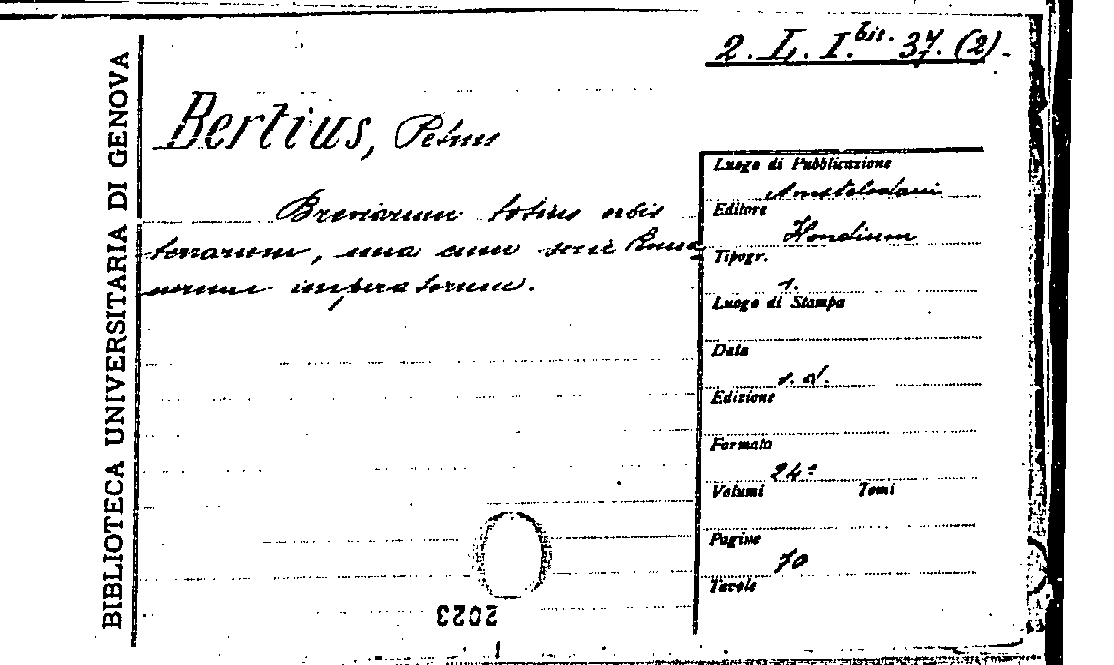 2. I. I.bis. 37. (2).
BIBLIOTECA UNIVERSITARIA DI GENOVA
Bertius, Petrus
Breviarum totius orbis
terrarum, una cum serie Roma=
norum imperatorum.
Luogo di Pubblicazione
Amstelodami
Editore
Hondium
Tipogr.
Luogo di Stampa
Data
s. d.
Edizione
Formato
24º
Volumi Tomi
Pagine
70
Tavole
2023